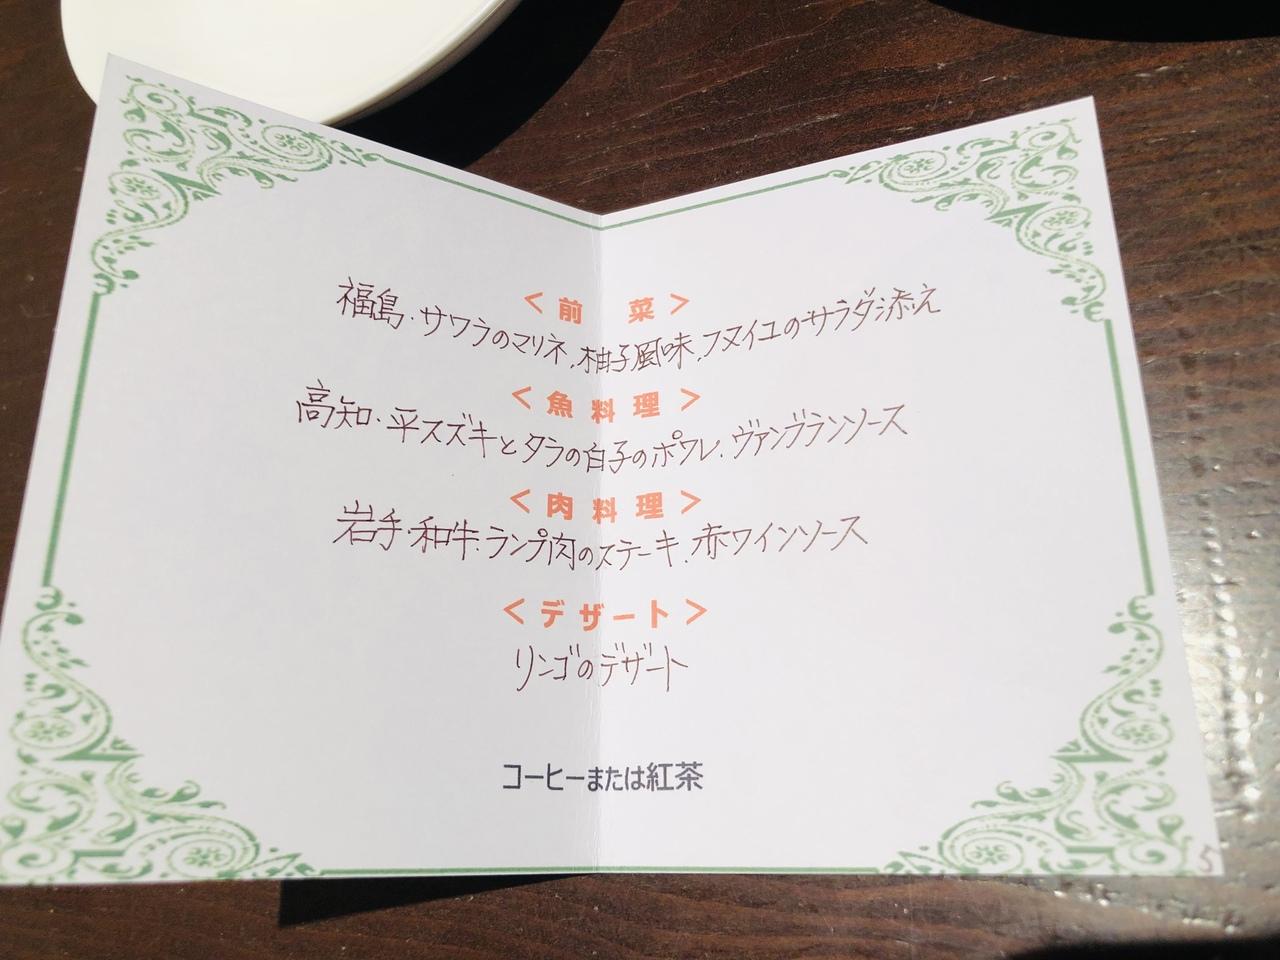 <前 菜>
福島・サワラのマリネ、柚子風味、フヌイユのサラダ添え
<魚料理>
高知・平スズキとタラの白子のポワレ、ヴァンブランソース
<肉料理>
岩手・和牛ランプ肉のステーキ、赤ワインソース
<デザート>
リンゴのデザート
コーヒーまたは紅茶
5